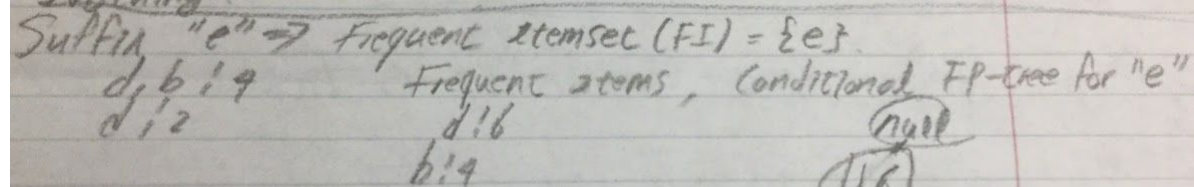 Suffix "e" => Frequent Itemset (FI) = {e}.
d, b : 4 Frequent items, Conditional FP-tree for "e"
d : 2 d : 6 null
b : 4